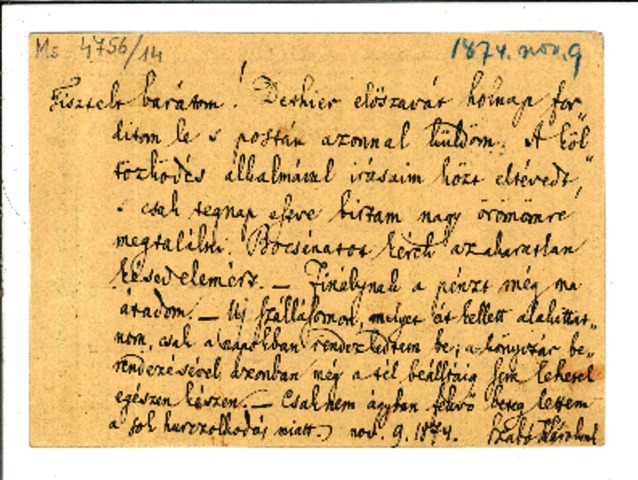 Ms 4756/14
1874. nov. 9
Tisztelt barátom! Deshier előszavát holnap for
dítom le s postán azonnal küldöm. A köl„
tözködés alkalmával irásaim közt eltévedt,
s csak tegnap estve birtam nagy örömömre
megtalálni. Bocsánatot kérek az akaratlan
késedelemért. — a pénzt még ma
átadom. — Uj szállásomon, melyet át kellett alakittat„
nom, csak a napokban rendezkedtem be; a könyvtár be„
rendezésével azonban még a tél beálltáig sem lehetek
egészen készen. — Csaknem ágyban fekvő beteg lettem
a sok hurczolkodás miatt.) nov. 9. 1874. Szabó Károly